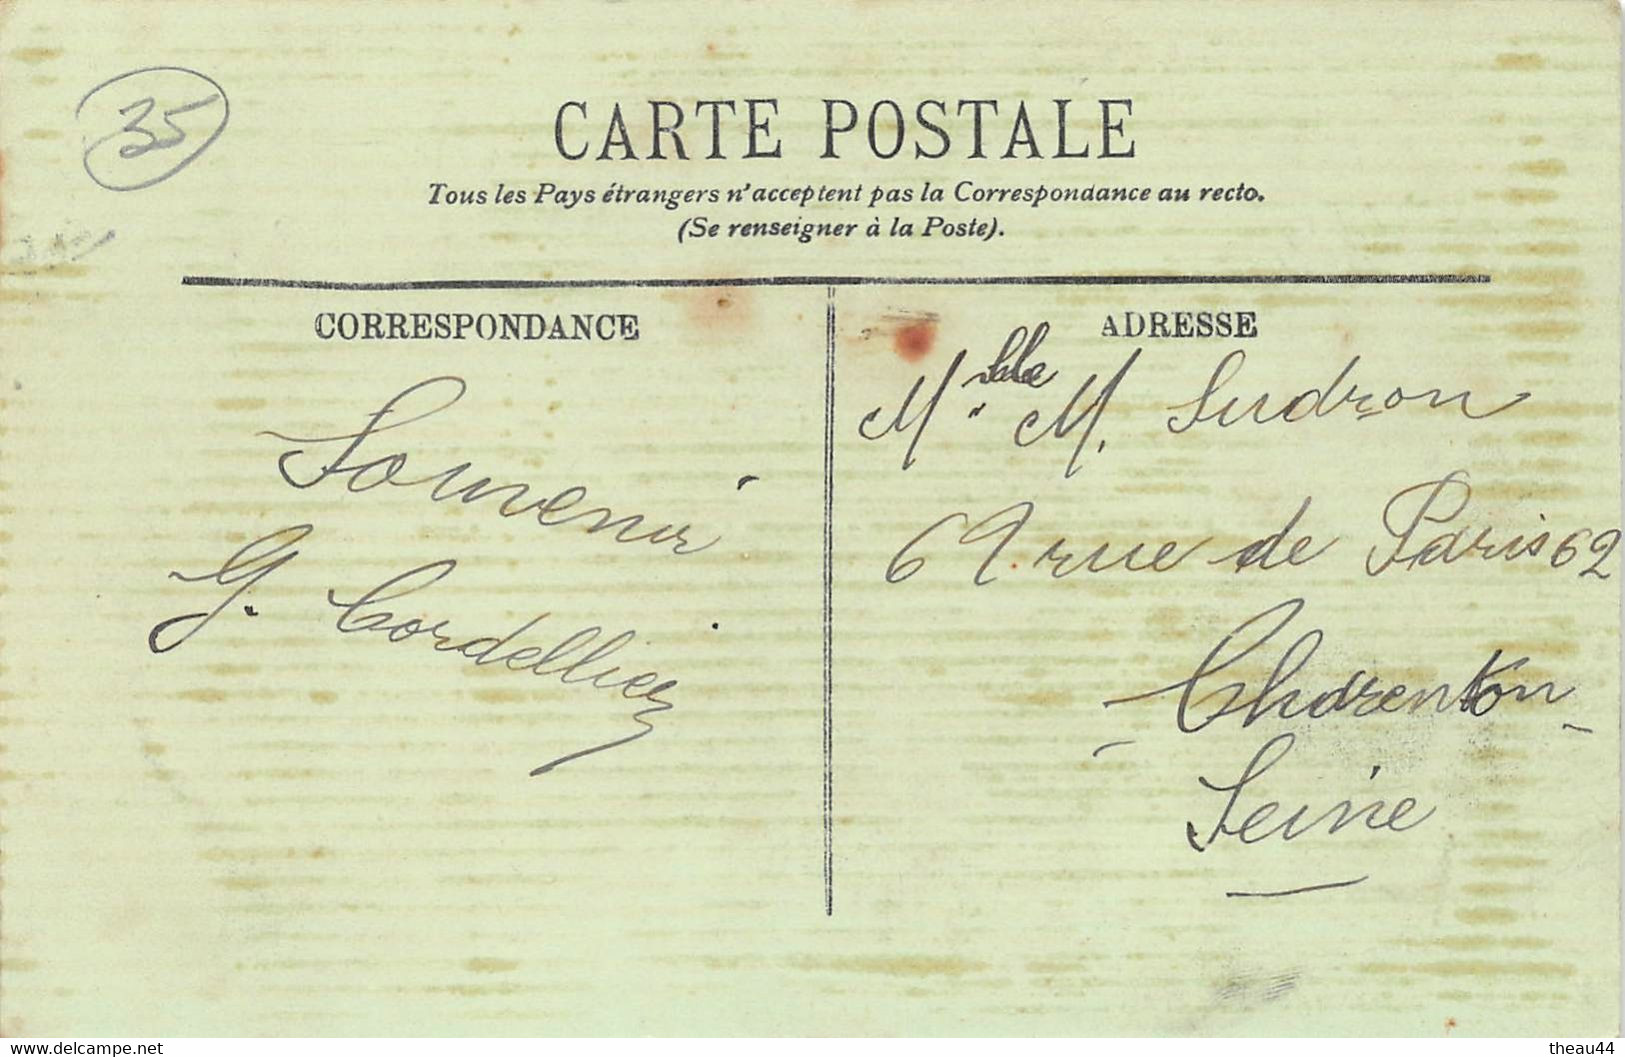 35
CARTE POSTALE
Tous les Pays étrangers n'acceptent pas la Correspondance au recto.
(Se renseigner à la Poste).
CORRESPONDANCE
Souvenir
G. Cordellier
ADRESSE
Melle M. Sudron
62 rue de Paris 62
Charenton
Seine
www.delcampe.net
theau44